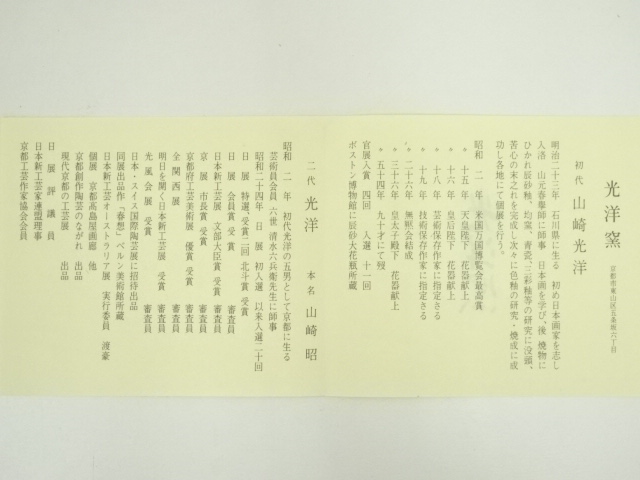 光洋窯
京都市東山区五条坂六丁目
初代 山崎光洋
明治二十三年 石川県に生る 初め日本画家を志し
入洛 山元春挙師に師事、日本画を学び、後 焼物に
ひかれ辰砂釉、均窯、青瓷、三彩釉等の研究に没頭、
苦心の末之れを完成し次々に色釉の研究・焼成に成
功し各地にて個展を行う。
昭和 二 年 米国万国博覧会最高賞
〃 十五 年 天皇陛下 花器献上
〃 十六 年 皇后陛下 花器献上
〃 十八 年 芸術保存作家に指定さる
〃 十九 年 技術保存作家に指定さる
〃 二十六 年 無黙会結成
〃 三十六 年 皇太子殿下 花器献上
〃 五十四年 九十才にて歿
官展入賞 四回 入選 十一回
ボストン博物館に辰砂大花瓶所蔵
二代 光洋 本名 山崎 昭
昭和 二 年 初代光洋の五男として京都に生る
芸術院会員 六世 清水六兵衛先生に師事
昭和二十四年 日展 初入選 以来入選二十回
日展 特選、受賞二回 北斗賞 受賞
日展 会員賞 受賞 審査員
日本新工芸展 文部大臣賞 受賞 審査員
京展 市長賞 受賞 審査員
京都府工芸美術展 優賞 受賞 審査員
全関西展 審査員
明日を開く日本新工芸展 受賞 審査員
光風会展 受賞 審査員
日本・スイス国際陶芸展に招待出品
同展出品作「春想」ベルン美術館所蔵
日本新工芸オーストラリア展 実行委員 渡豪
個展 京都高島屋画廊 他
京都創作陶芸のながれ 出品
現代京都の工芸展 出品
日展評議員
日本新工芸家連盟理事
京都工芸作家協会会員